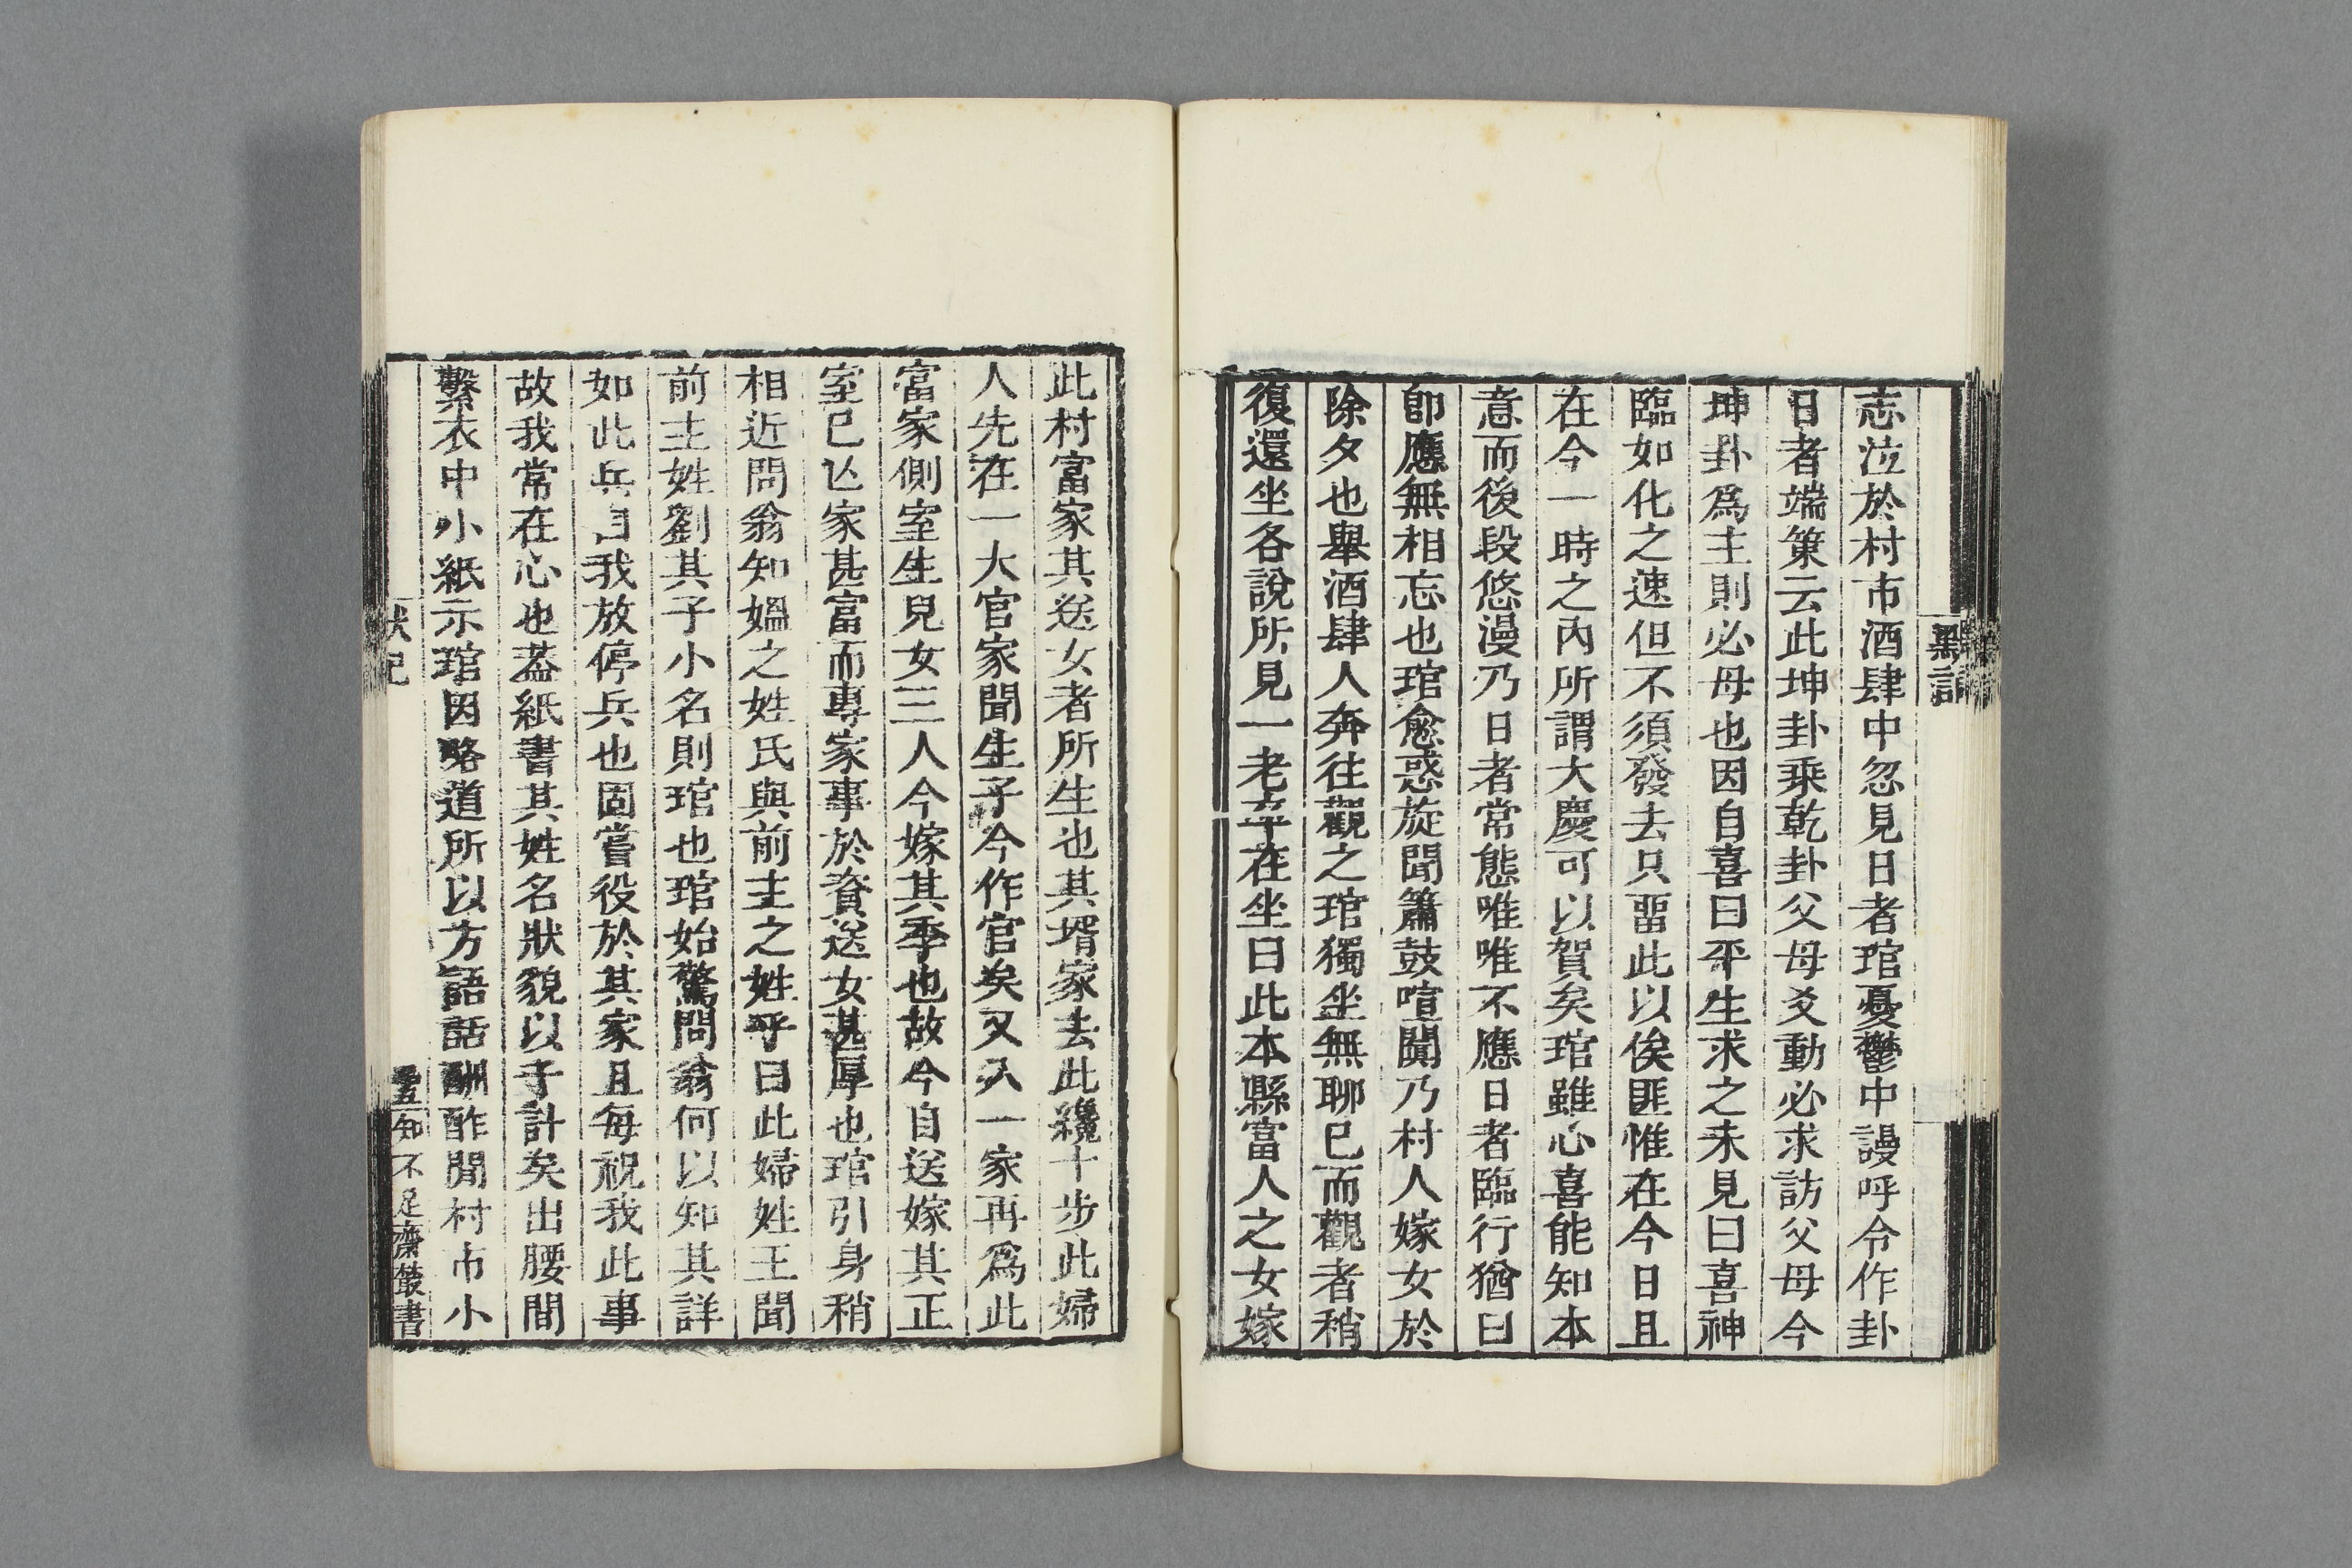 志泣於村市酒肆中忽見日者琯憂鬱中謾呼令作卦
日者端策云此坤卦乘乾卦父母爻動必求訪父母今
坤卦爲主則必母也因自喜曰平生求之未見曰喜神
臨如化之速但不須發去只畱此以俟匪惟在今日且
在今一時之內所謂大慶可以賀矣琯雖心喜能知本
意而後段悠漫乃日者常態唯唯不應日者臨行猶曰
卽應無相忘也琯愈惑旋聞簫鼓喧闐乃村人嫁女於
除夕也舉酒肆人奔往觀之琯獨坐無聊已而觀者稍
復還坐各說所見一老卒在坐曰此本縣富人之女嫁
此村富家其送女者所生也其壻家去此纔十步此婦
人先在一大官家聞生子今作官矣又入一家再爲此
富家側室生兒女三人今嫁其季也故今自送嫁其正
室已亾家甚富而專家事於資送女甚厚也琯引身稍
相近問翁知媼之姓氏與前主之姓乎曰此婦姓王聞
前主姓劉其子小名則琯也琯始驚問翁何以知其詳
如此兵曰我放停兵也固嘗役於其家且每祝我此事
故我常在心也葢紙書其姓名狀貌以予計矣出腰間
繫衣中小紙示琯因略道所以方語話酬酢間村市小
默記
知不足齋叢書